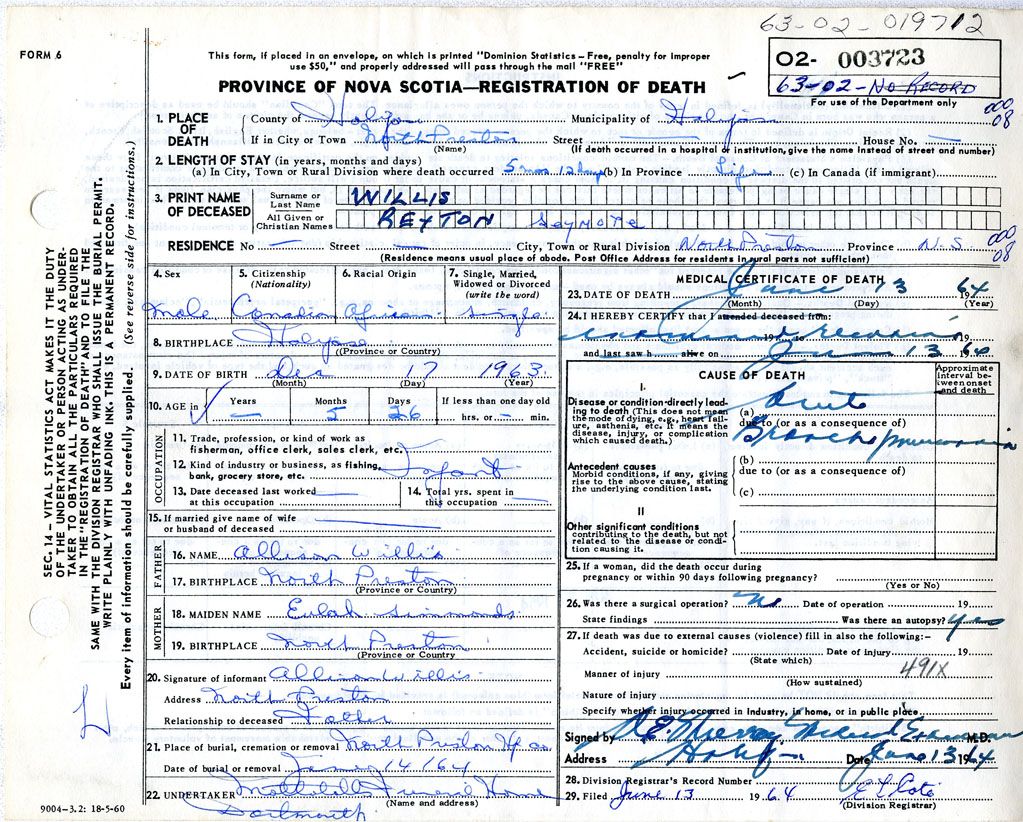 63-02-019712
FORM 6
This form, if placed in an envelope, on which is printed "Dominion Statistics – Free, penalty for improper
use $50," and properly addressed will pass through the mail "FREE"
PROVINCE OF NOVA SCOTIA—REGISTRATION OF DEATH
02- 003723
63-02-No RECORD
For use of the Department only
000
08
1. PLACE OF DEATH
County of Halifax Municipality of Halifax
If in City or Town North Preston Street House No.
(Name) (If death occurred in a hospital or institution, give the name instead of street and number)
2. LENGTH OF STAY (in years, months and days)
(a) In City, Town or Rural Division where death occurred 5 mos 12 days (b) In Province Life (c) In Canada (if immigrant)
3. PRINT NAME OF DECEASED
Surname or Last Name WILLIS
All Given or Christian Names REYTON
RESIDENCE No Street City, Town or Rural Division North Preston Province N.S
000
08
(Residence means usual place of abode. Post Office Address for residents in rural parts not sufficient)
4. Sex 5. Citizenship (Nationality) 6. Racial Origin 7. Single, Married, Widowed or Divorced (write the word)
Male Canadian African Single
8. BIRTHPLACE Halifax
(Province or Country)
9. DATE OF BIRTH Dec 17 1963
(Month) (Day) (Year)
10. AGE in Years Months Days If less than one day old
5 26 hrs. or min.
OCCUPATION
11. Trade, profession, or kind of work as
fisherman, office clerk, sales clerk, etc.
12. Kind of industry or business, as fishing,
bank, grocery store, etc. Infant
13. Date deceased last worked
at this occupation
14. Total yrs. spent in
this occupation
15. If married give name of wife
or husband of deceased
FATHER
16. NAME Allison Willis
17. BIRTHPLACE North Preston
(Province or Country)
MOTHER
18. MAIDEN NAME Eulah Simmonds
19. BIRTHPLACE North Preston
(Province or Country)
20. Signature of informant Allison Willis
Address North Preston
Relationship to deceased Father
21. Place of burial, cremation or removal North Preston Hfx Co
Date of burial or removal June 14/64
22. UNDERTAKER Funeral Home
(Name and address)
Dartmouth
9004-3.2: 18-5-60
MEDICAL CERTIFICATE OF DEATH
23. DATE OF DEATH June 13 1964
(Month) (Day) (Year)
24. I HEREBY CERTIFY that I attended deceased from:
19 to
and last saw h alive on June 13 1964
CAUSE OF DEATH
Approximate interval between onset and death
I.
Disease or condition directly leading to death (This does not mean the mode of dying, e.g., heart failure, asthenia, etc. It means the disease, injury, or complication which caused death.)
(a) Acute
due to (or as a consequence of)
Bronchopneumonia
Antecedent causes
Morbid conditions, if any, giving rise to the above cause, stating the underlying condition last.
(b)
due to (or as a consequence of)
(c)
II
Other significant conditions
contributing to the death, but not related to the disease or condition causing it.
25. If a woman, did the death occur during
pregnancy or within 90 days following pregnancy?
(Yes or No)
26. Was there a surgical operation? No Date of operation 19
State findings Was there an autopsy? Yes
27. If death was due to external causes (violence) fill in also the following:–
Accident, suicide or homicide? Date of injury 19
(State which)
491X
Manner of injury
(How sustained)
Nature of injury
Specify whether injury occurred in Industry, in home, or in public place
Signed by Medical Examiner M.D.
Address Halifax Date June 13 1964
28. Division Registrar's Record Number
29. Filed June 13 1964
(Division Registrar)
SEC. 14 – VITAL STATISTICS ACT MAKES IT THE DUTY
OF THE UNDERTAKER OR PERSON ACTING AS UNDER-
TAKER TO OBTAIN ALL THE PARTICULARS REQUIRED
IN THE "REGISTRATION OF DEATH" AND TO FILE THE
SAME WITH THE DIVISION REGISTRAR WHO SHALL ISSUE THE BURIAL PERMIT.
WRITE PLAINLY WITH UNFADING INK. THIS IS A PERMANENT RECORD.
Every item of information should be carefully supplied. (See reverse side for instructions.)